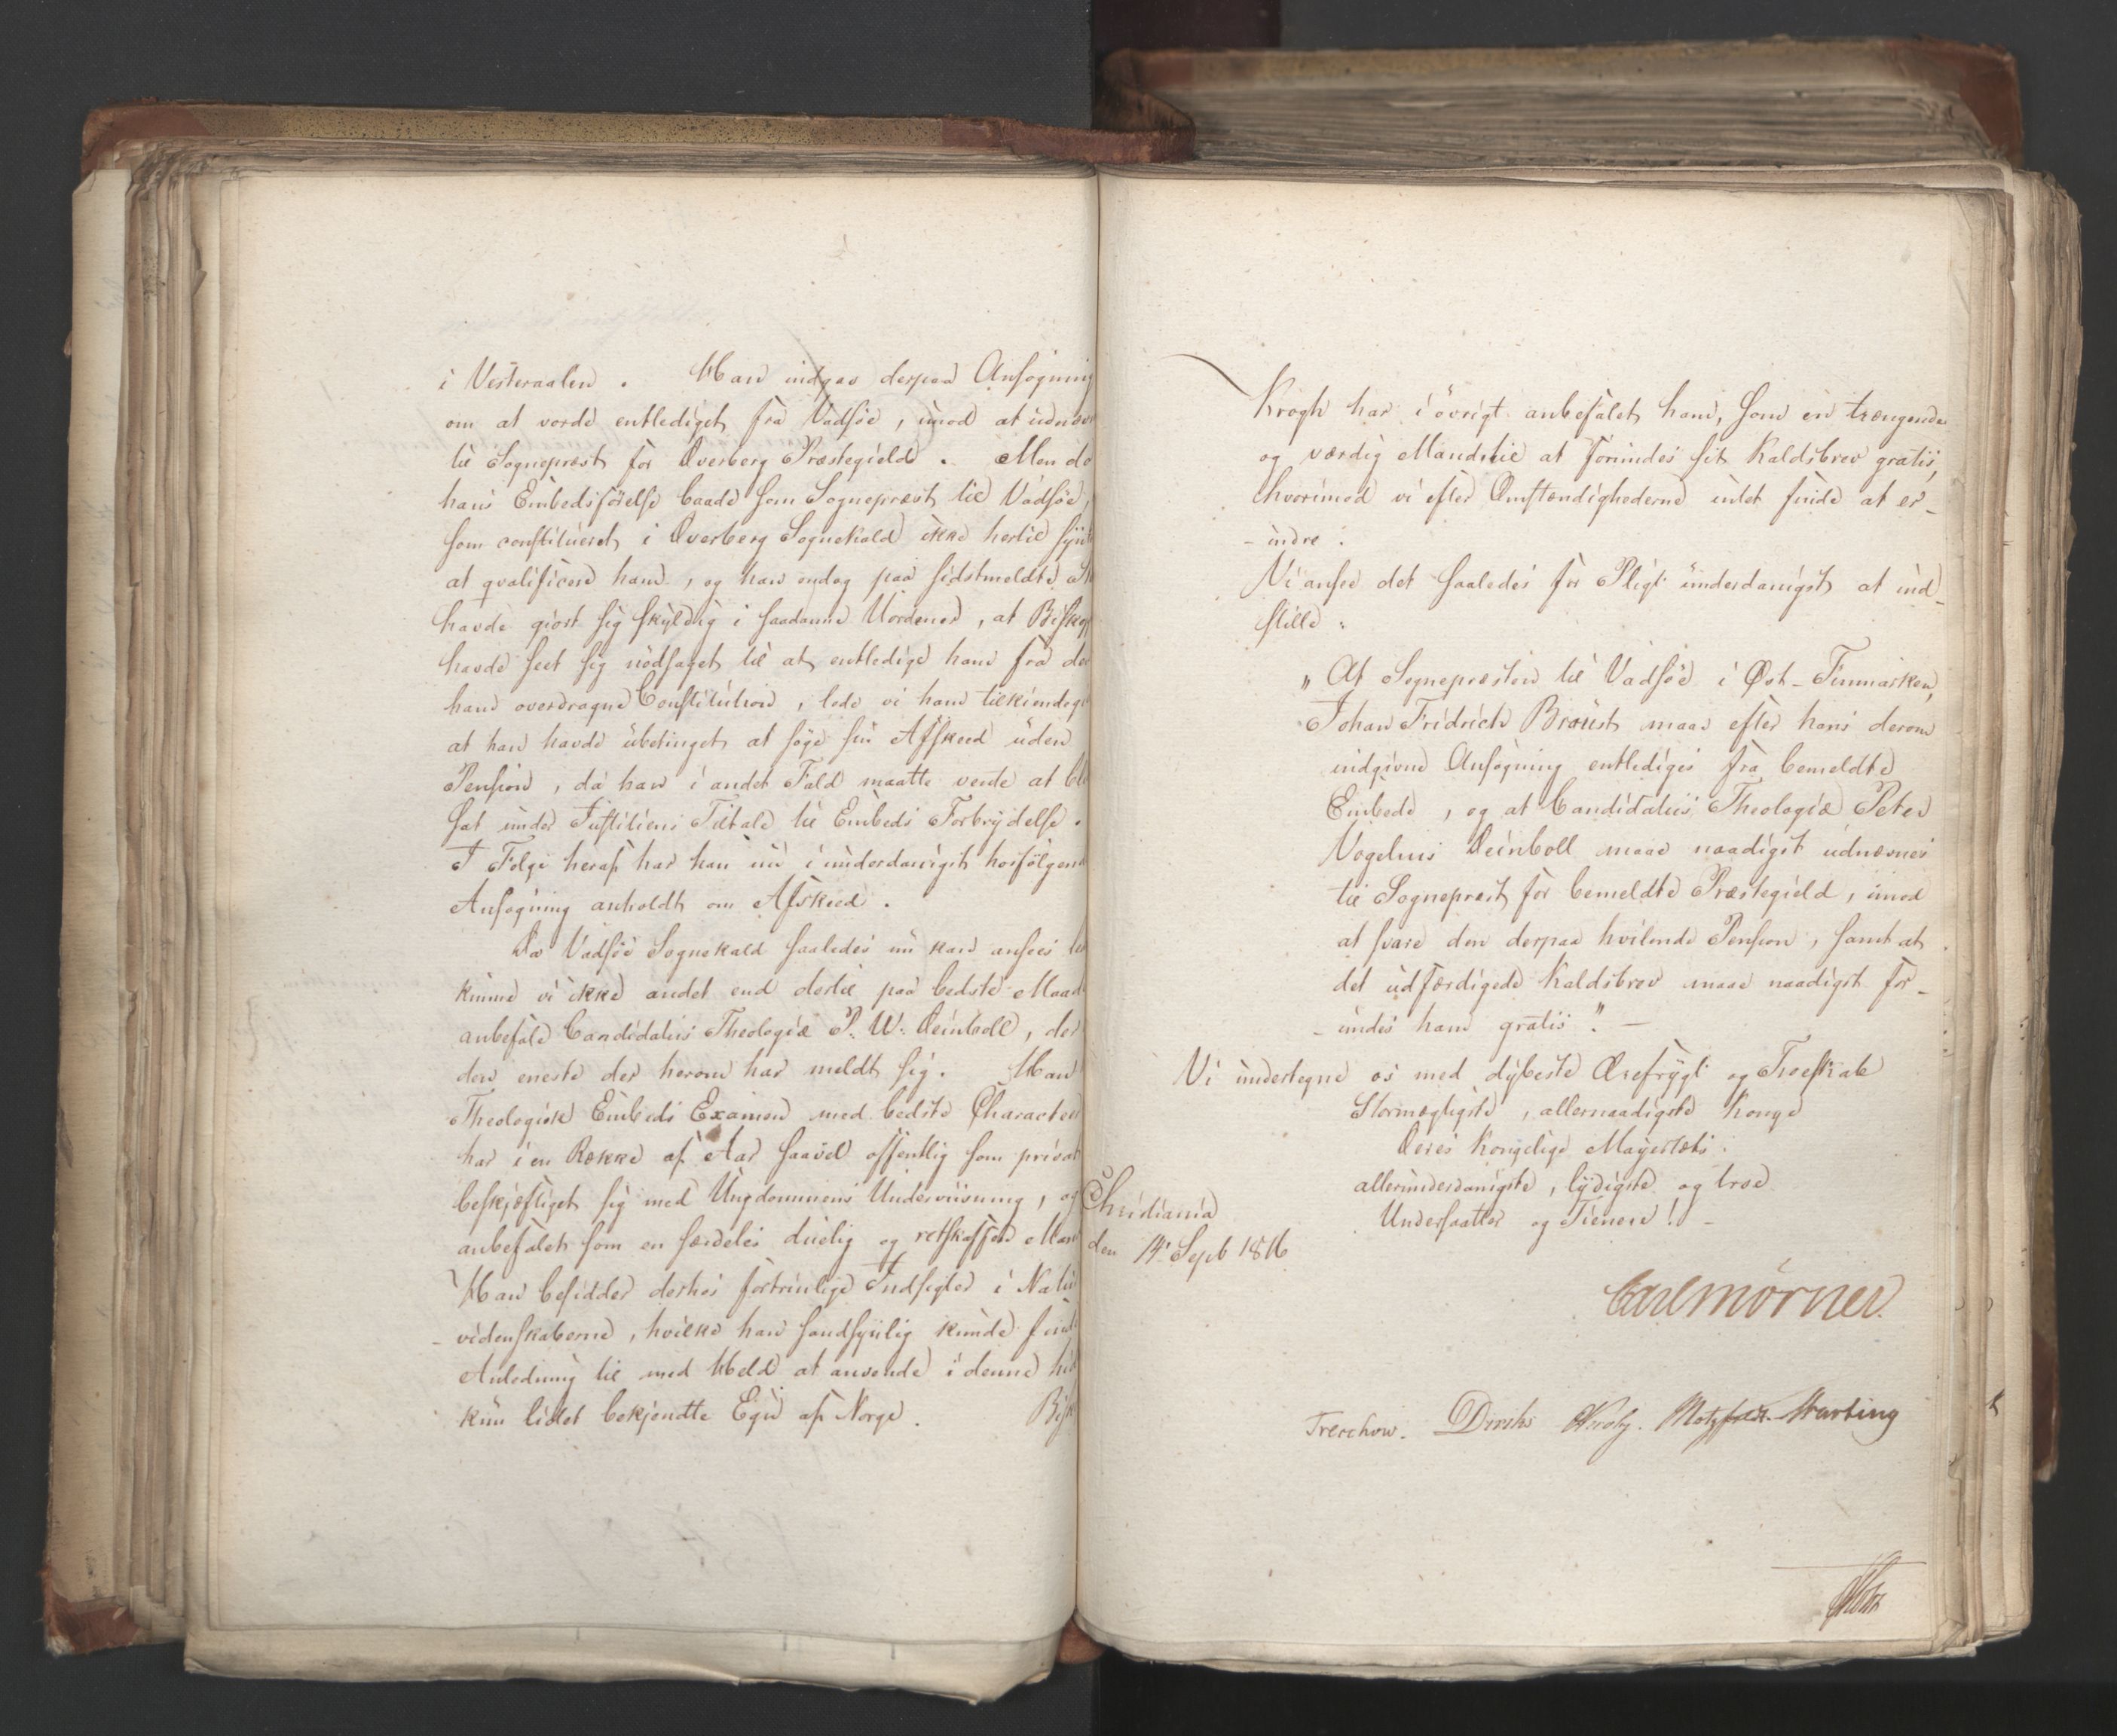 i Vesteraalen. Han indgav derpaa Ansøgning
om at vorde entlediget fra Vadsøe, imod at udnæv
til Sognepræst for Qverberg Præstegield. Men da
hans Embedsførelse baade som Sognepræst til Vadsøe,
som constitueret i Qverberg Sognekald ikke hertil syn
at qvalificere ham, og han endog paa sidstmeldte St
havde giort sig skyldig i saadanne Uordener, at Biskop
havde seet sig nødsaget til at entledige ham fra den
ham overdragne Constitution, lode vi ham tilkiendegi
at han havde ubetinget at søge sin Afskeed uden
Pension, da han i andet Fald maatte vente at bli
sat under Justitiens Tiltale til Embeds Forbrydelse.
I Følge heraf har han nu i underdanigst hosfølgend
Ansøgning anholdt om Afskeed.
Da Vadsøe Sognekald saaledes nu kan ansees le
kunne vi ikke andet end dertil paa bedste Maad
anbefale Candidatus Theologiæ P. W. Deinboll, der
den eneste der herom har meldt sig. Han
Theologisk Embeds Examen med bedste Character
har i en Række af Aar saavel offentlig som privat
beskjæftiget sig med Ungdommens Underviisning, og
anbefalet som en særdeles duelig og retskaffen Man
Han besidder derhos fortrinlige Indsigter i Natur
-videnskaberne, hvilke han sandsynlig kunde finde
Anledning til med Held at anvende i denne hid
kun lidet bekjendte Egn af Norge.
Bisk
Krogh har i øvrigt anbefalet ham, som en trængende
og værdig Mand til at forundes sit Kaldsbrev gratis,
hvorimod vi efter Omstændighederne intet finde at er-
-indre.
Vi ansee det saaledes for Pligt underdanigst at ind-
stille:
"At Sognepræsten til Vadsøe i Øst-Finmarken,
Johan Fridrich Broust maae efter hans derom
indgivne Ansøgning entlediges fra bemeldte
Embede, og at Candidatus Theologiæ Peter
Vogelius Deinboll maae naadigst udnævnes
til Sognepræst for bemeldte Præstegield, imod
at svare den derpaa hvilende Pension, samt at
det udfærdigede Kaldsbrev maae naadigst for-
-undes ham gratis". -
Vi undertegne os med dybeste Ærefrygt og Troeskab
Stormægtigste, allernaadigste Konge
Deres Kongelige Mayestæts
allerunderdanigste, lydigste og troe
Undersaatter og Tienere! -
Christiania
den 14' Sept 1816
Carl Mörner.
Treschow. Diriks Krog. Motzfeldt. Hartting